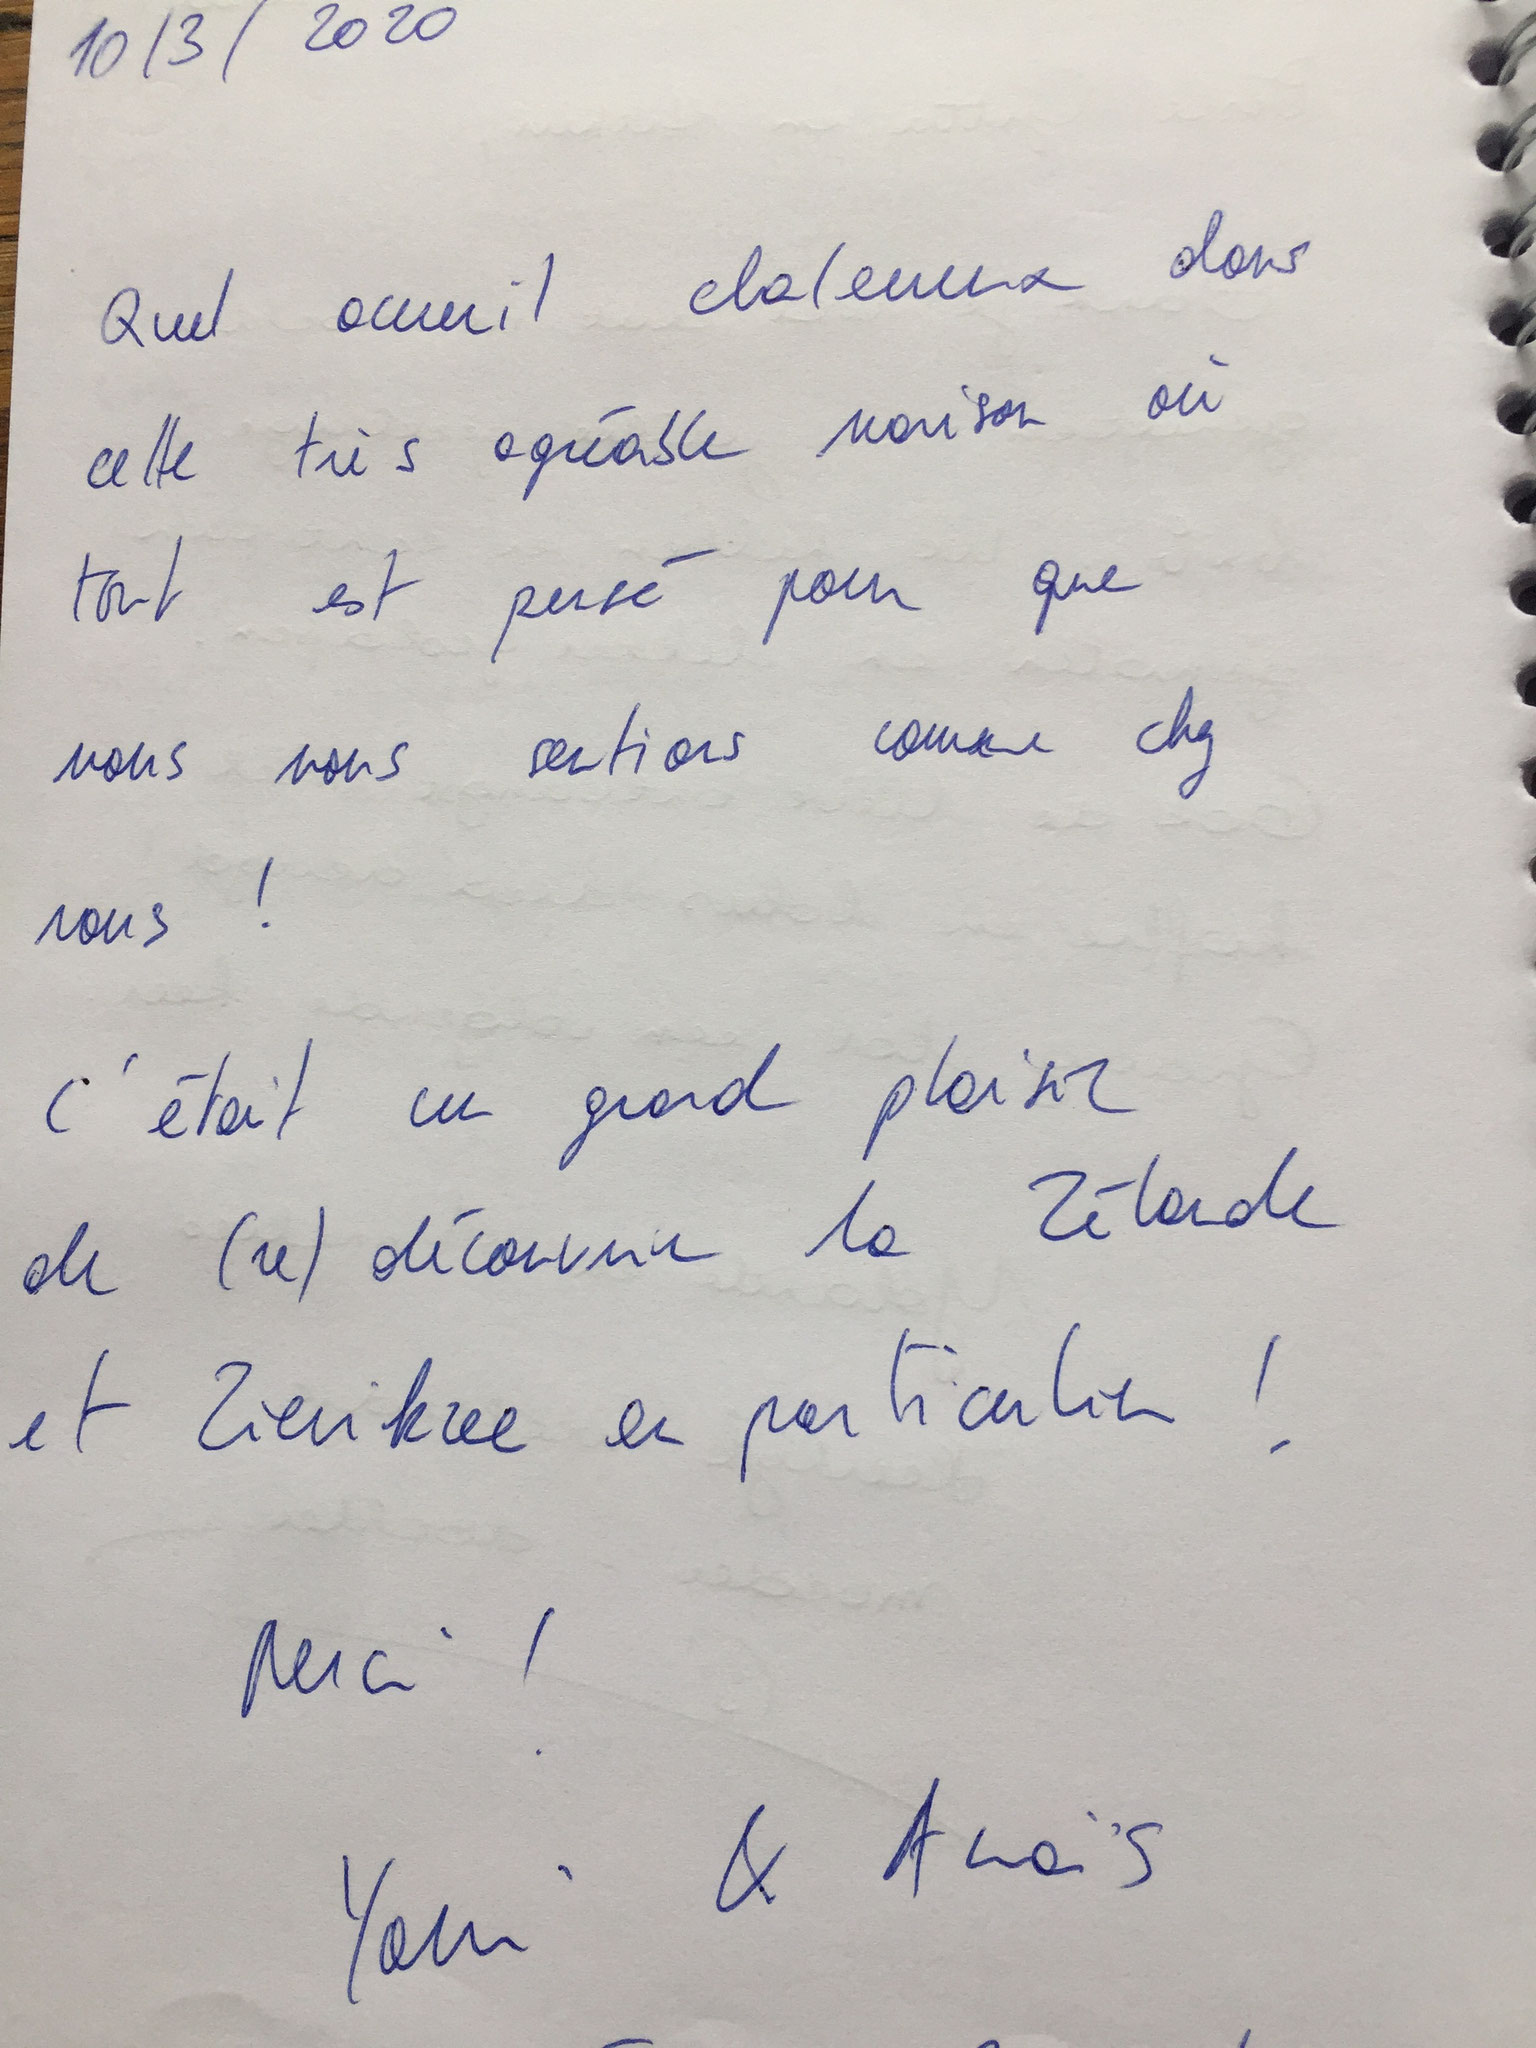 10/3/2020
Quel accueil chaleureux dans
cette très agréable maison où
tout est pensé pour que
nous nous sentions comme chez
nous !
C'était un grand plaisir
de (re)découvrir la Zélande
et Zierikzee en particulier !
Merci !
& Anaïs